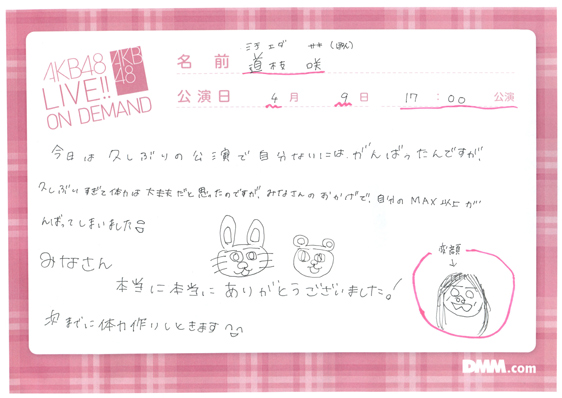 AKB48
LIVE!!
ON DEMAND
AKB
48
ミチエダ サキ(ぽん)
名前 道枝 咲
公演日 4月 9日 17:00 公演
今日は久しぶりの公演で自分なりには、がんばったんですが、
久しぶりすぎて体力は大丈夫だと思ったのですが、みなさんのおかげで、自分のMAX以上が
んばってしまいました
みなさん
本当に本当にありがとうございました。!
次までに体力作りしときます
変顔
↓
DMM.com